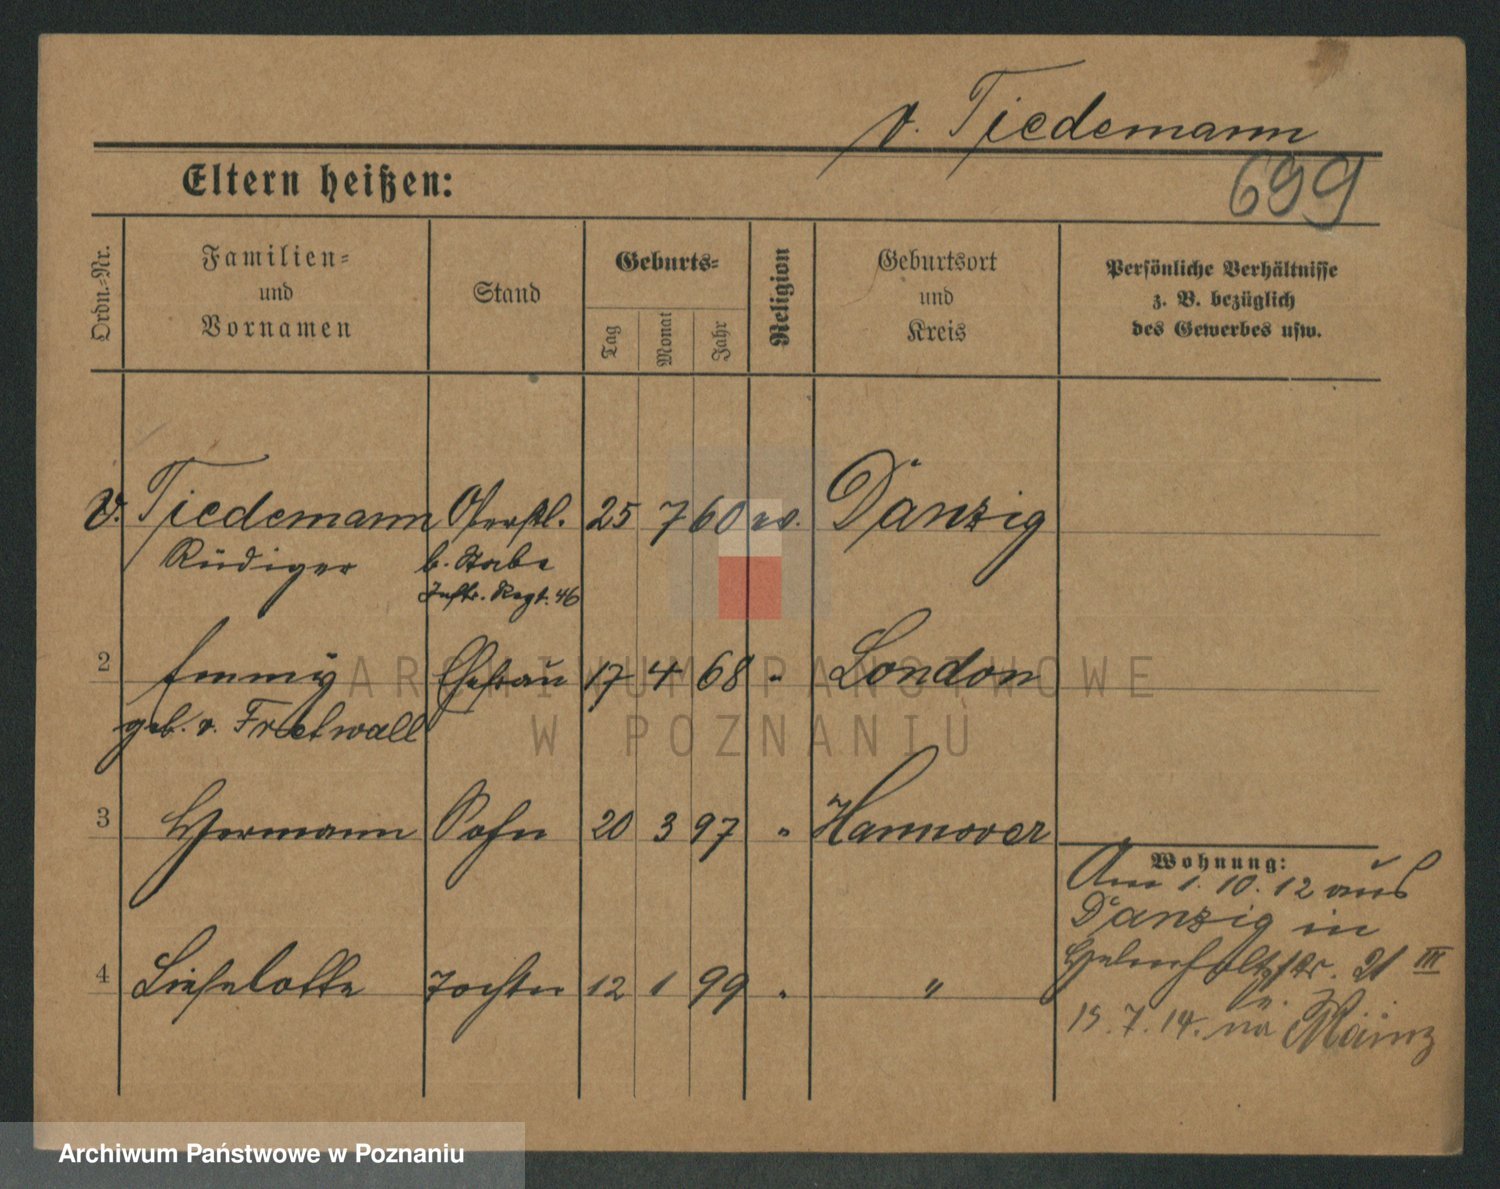 v. Tiedemann
Eltern heißen:
699
Ordn.-Nr.
Familien-
und
Vornamen
Stand
Geburts-
Tag
Monat
Jahr
Religion
Geburtsort
und
Kreis
Persönliche Verhältnisse
z. B. bezüglich
des Gewerbes usw.
v. Tiedemann Oberstl. 25 7 60 ev. Danzig
Rüdiger b. Stabe
Inftr. Regt. 46
2 Emmy Ehefrau 17 4 68 " London
geb. v. Fretwall
3 Hermann Sohn 20 3 97 " Hannover
Wohnung:
Am 1.10.12 aus
Danzig in
4 Lieselotte Tochter 12 1 99 " "
21 III
15.7.14. na Mainz
ARCHIWUM PAŃSTWOWE
W POZNANIU
Archiwum Państwowe w Poznaniu